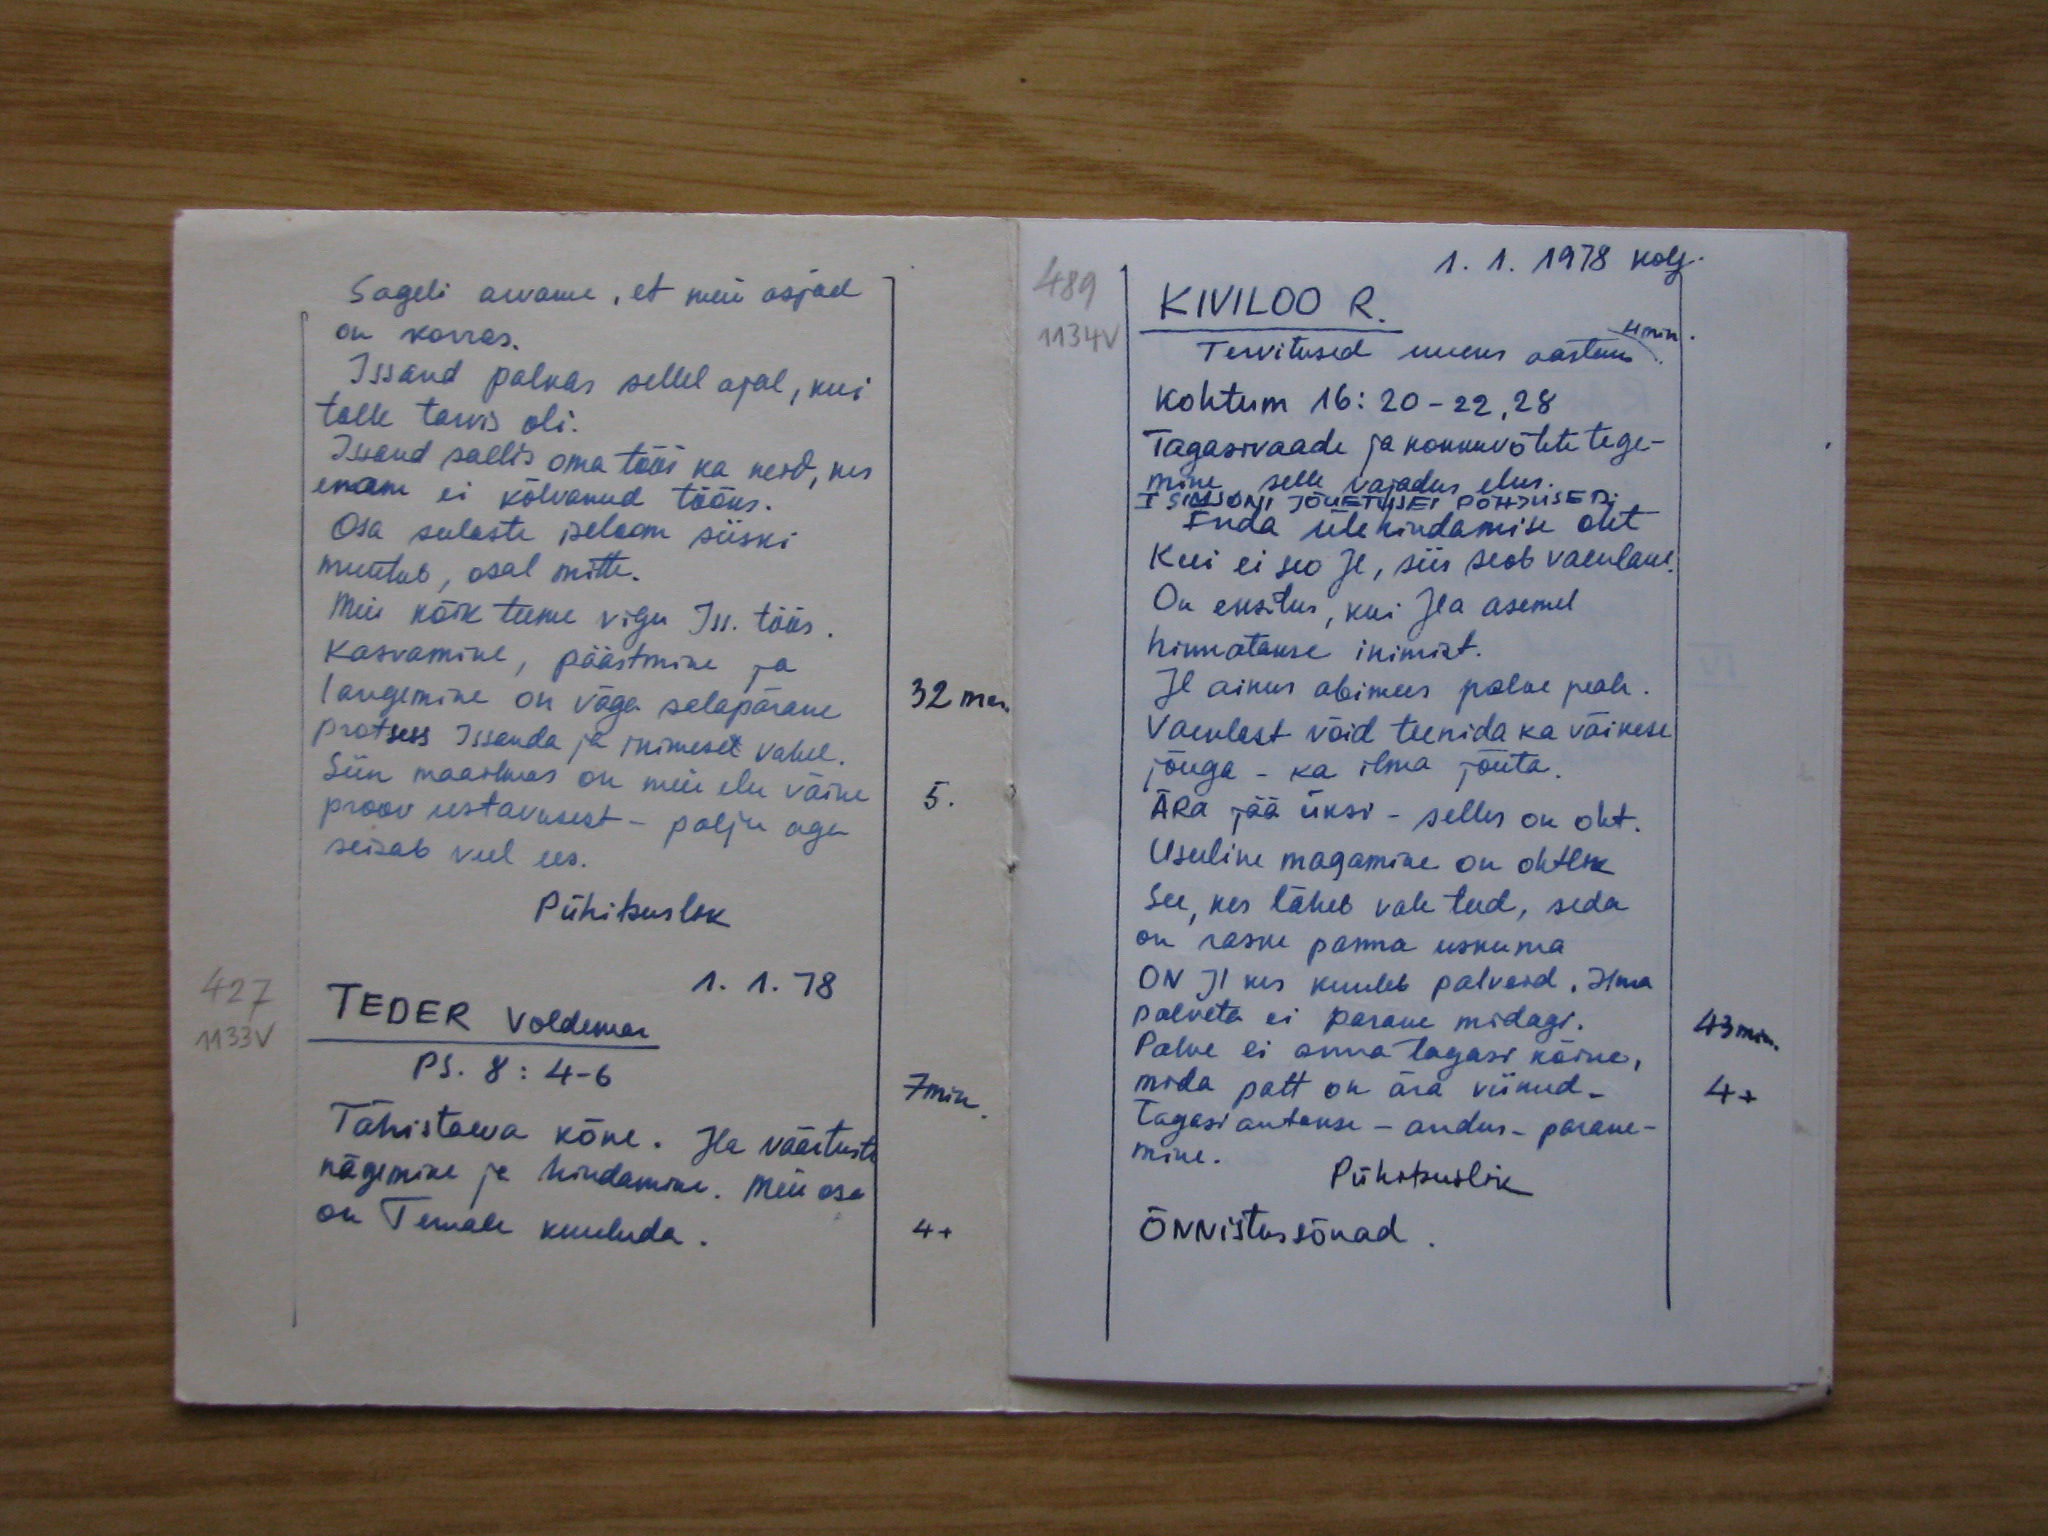 Sageli arvame, et meie asjad
on korras.
Issand palkas sellel ajal, kui
talle tarvis oli.
Issand sallis oma töös ka neid, kes
enam ei kõlvanud tööks.
Osa sulaste iseloom siiski
muutub, osal mitte.
Meie kõik teeme vigu Iss. töös.
Kasvamine, päästmine ja
langemine on väga salapärane
32 min.
protsess Issanda ja inimeset vahel.
Siin maailmas on meie elu väike
5.
proov ustavusest - palju aga
seisab veel ees.
Pühitsuslik
427
1133V
1. 1. 78
TEDER Voldemar
PS. 8: 4-6
7min.
Tähistaeva kõne. Jla väärtuste
nägemine ja hindamine. Meie osa
on Temale kuuluda.
4+
489
1134V
1. 1. 1978 kolg.
KIVILOO R.
4min.
Tervitused uueks aastaks.
Kohtum 16: 20-22, 28
Tagasivaade ja kokkuvõtte tege-
mine, selle vajadus elus.
I SIMSONI JÕUETUSEI PÕHJUSED:
Enda ülehindamise oht
Kui ei seo Jl, siis seob vaenlane.
On eksitus, kui Jla asemel
hinnatakse inimist.
Jl ainus abimees palve peale.
Vaenlast võid teenida ka väikese
jõuga - ka ilma jõuta.
ÄRA jää üksi - selles on oht.
Usuline magamine on ohtlik
See, kes läheb vale teed, seda
on raske panna uskuma
ON Jl kes kuuleb palveid. Ilma
palveta ei parane midagi.
43min.
Palve ei anna tagasi kõike,
mida patt on ära viinud -
4+
tagasi antakse - andus - parane-
mine.
Pühitsuslik
ÕNNistussõnad.